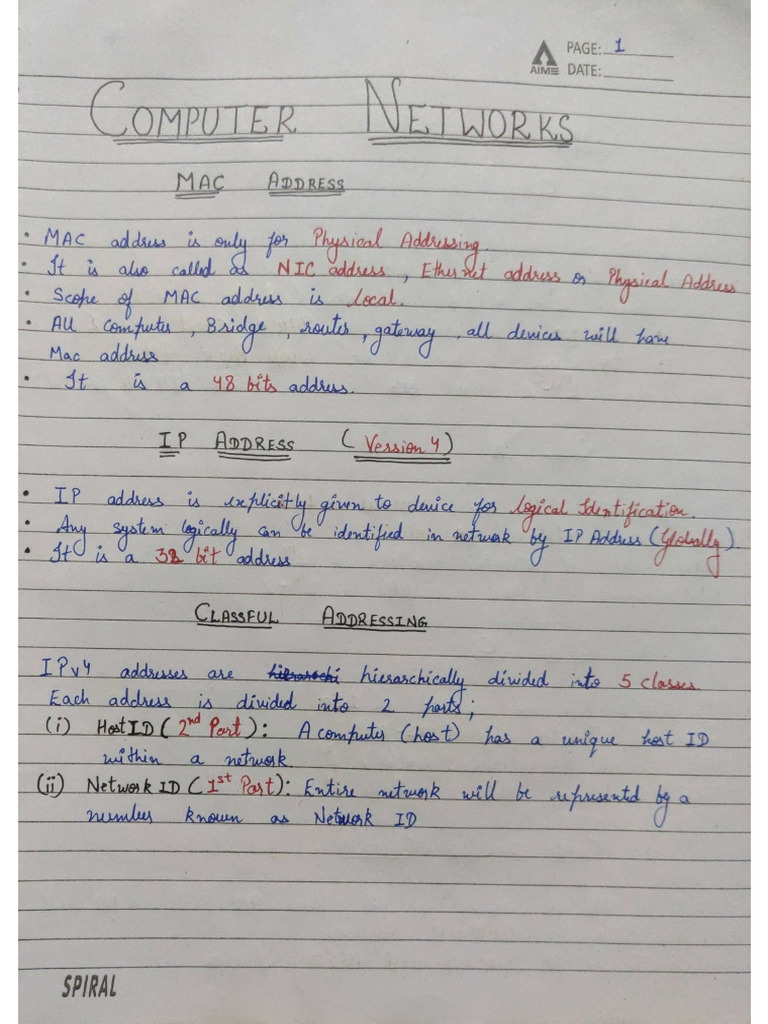 AIME PAGE: 1
DATE:
COMPUTER NETWORKS
MAC ADDRESS
• MAC address is only for Physical Addressing.
• It is also called as NIC address, Ethernet address or Physical Address
• Scope of MAC address is local.
• All Computer, Bridge, router, gateway, all devices will have
Mac address
• It is a 48 bits address.
IP ADDRESS (Version 4)
• IP address is explicitly given to device for logical Identification.
• Any system logically can be identified in network by IP Address (Globally).
• It is a 32 bit address
CLASSFUL ADDRESSING
IPv4 addresses are hierarchically divided into 5 classes.
Each address is divided into 2 parts;
(i) Host ID (2nd Part): A computer (host) has a unique host ID
within a network.
(ii) Network ID (1st Part): Entire network will be represented by a
number known as Network ID
SPIRAL